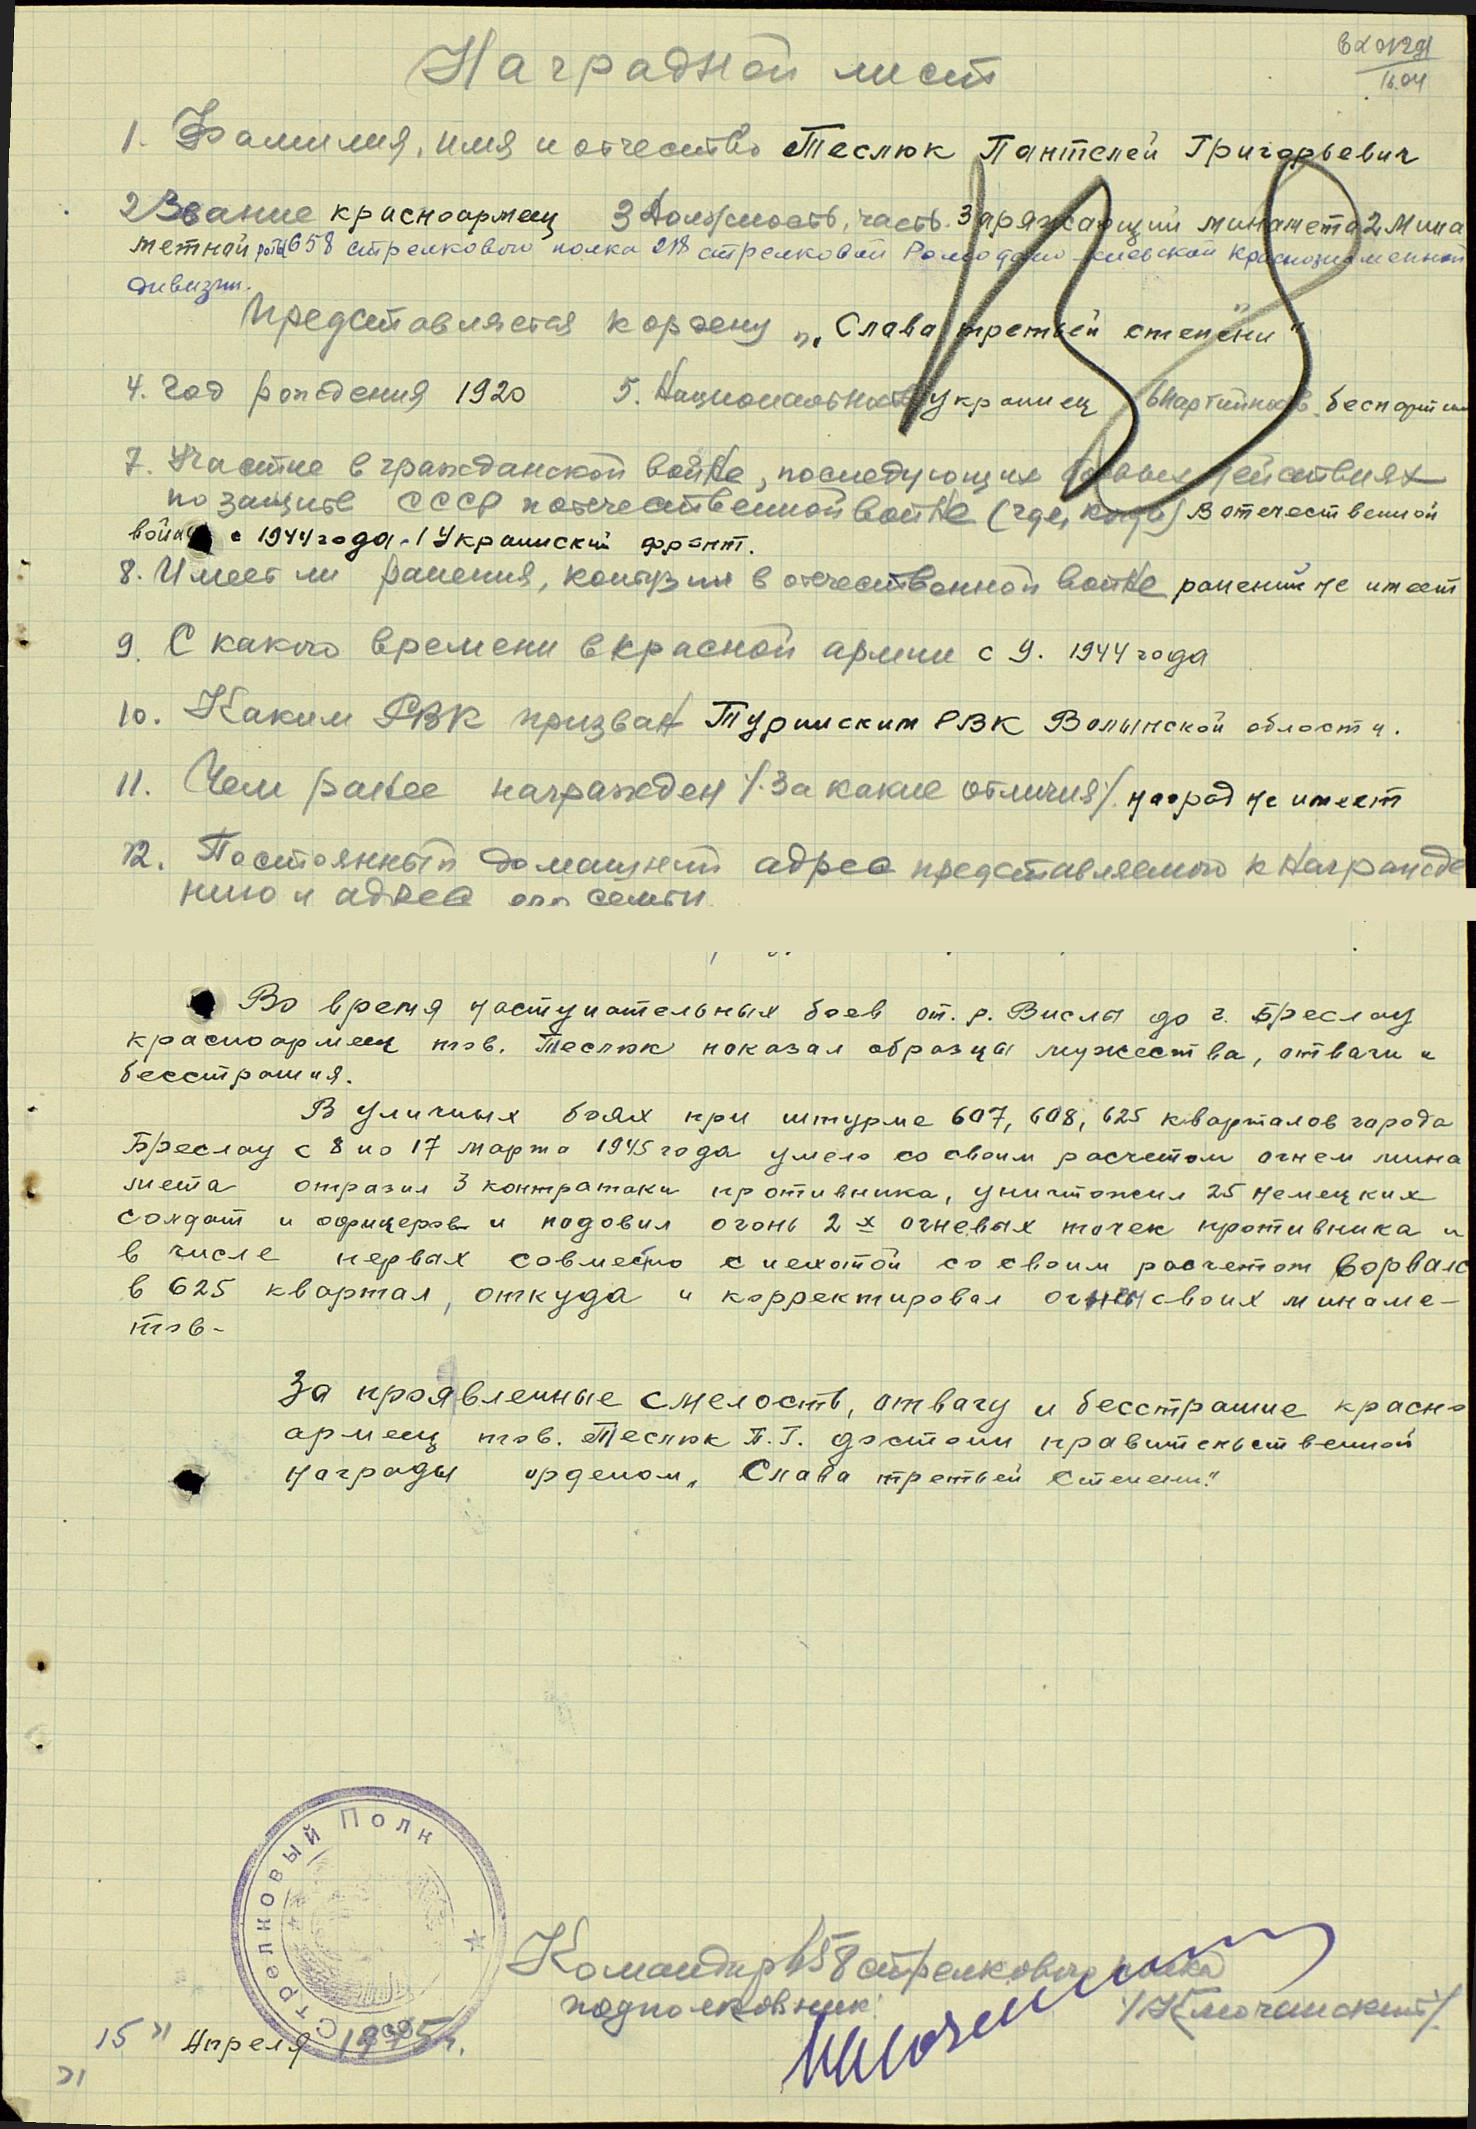 вх 0129
16.04
Наградной лист
1. Фамилия, имя и отчество Теслюк Пантелей Григорьевич
2 Звание красноармеец 3 Должность, часть. Заряжающий миномета 2 мино
метной роты 658 стрелкового полка 218 стрелковой Ромодано-Киевской Краснознаменной
дивизии.
Представляется к ордену „Слава третьей степени"
4. Год рождения 1920 5. Национальность украинец 6 Партийность беспартийн
7. Участие в гражданской войне, последующих боевых действиях
по защите СССР и отечественной войне (где, когда) В отечественной
войне с 1944 года. 1 Украинский фронт.
8. Имеет ли ранения, контузии в отечественной войне ранений не имеет
9. С какого времени в красной армии с 9. 1944 года
10. Каким РВК призван Турийским РВК Волынской области.
11. Чем ранее награжден /За какие отличия/ наград не имеет
12. Постоянный домашний адрес представляемого к награжде
нию и адрес его семьи
Во время наступательных боев от. р. Вислы до г. Бреслау
красноармеец тов. Теслюк показал образцы мужества, отваги и
бесстрашия.
В уличных боях при штурме 607, 608, 625 кварталов города
Бреслау с 8 по 17 марта 1945 года умело со своим расчетом огнем мино
мета отразил 3 контратаки противника, уничтожил 25 немецких
солдат и офицеров и подовил огонь 2х огневых точек противника и
в числе первых совместно с пехотой со своим расчетом ворвалс
в 625 квартал, откуда и корректировал огнем своих миноме-
тов-
За проявленные смелость, отвагу и бесстрашие красно
армеец тов. Теслюк П.Г. достоин правительственной
награды орденом „Слава третьей степени"
Стрелковый Полк
Командир 658 стрелкового полка
подполковник /Ключанский/
15" Апреля 1945 г.